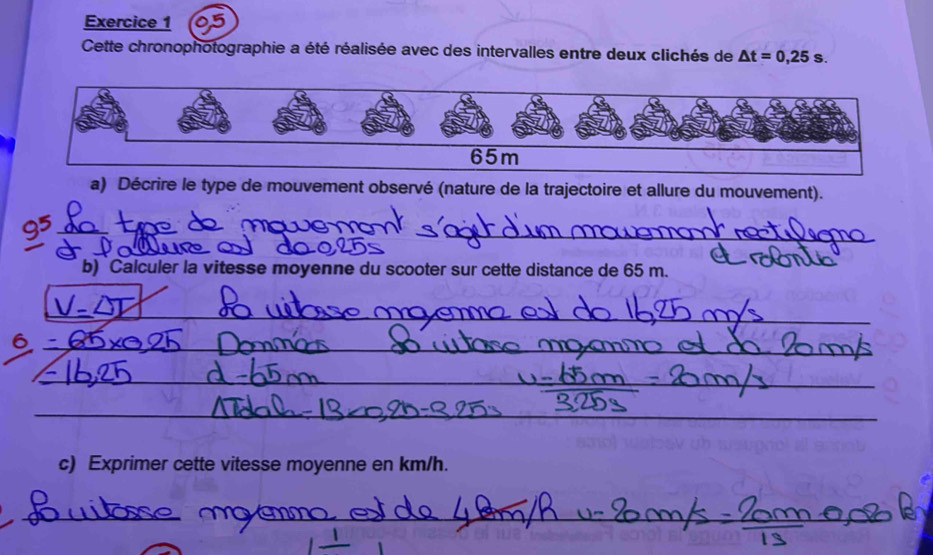 Exercice 1 0,5
Cette chronophotographie a été réalisée avec des intervalles entre deux clichés de Δt = 0,25 s.
65 m
a) Décrire le type de mouvement observé (nature de la trajectoire et allure du mouvement).
La type de mouvement s'agit d'un mouvement rectiligne
et l'allure est de 0,25s et ralentie
b) Calculer la vitesse moyenne du scooter sur cette distance de 65 m.
V=ΔT La vitesse moyenne est de 16,25 m/s
= 65×0,25 Données La vitesse moyenne est de 20 m/s
= 16,25 d=65m v=65m/3,25s = 20m/s
ΔT = 13×0,25=3,25s
c) Exprimer cette vitesse moyenne en km/h.
La vitesse moyenne est de v=20 m/s = 20m/1s 0,020